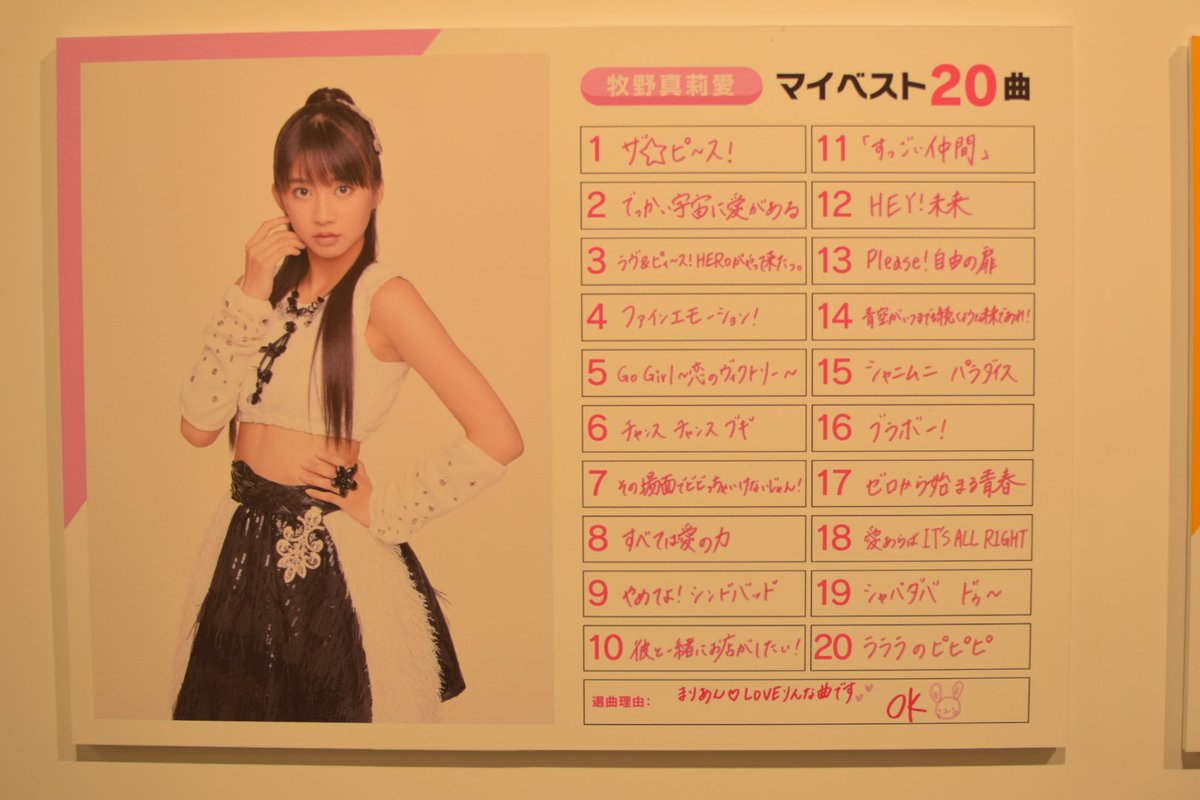 牧野真莉愛 マイベスト20曲
1 ザ☆ピ〜ス!
2 でっかい宇宙に愛がある
3 ラヴ&ピィ〜ス!HEROがやって来たっ。
4 ファインエモーション!
5 Go Girl〜恋のヴィクトリー〜
6 チャンス チャンス ブギ
7 その場面でビビっちゃいけないじゃん!
8 すべては愛の力
9 やめてよ!シンドバッド
10 彼と一緒にお店がしたい!
11 「すっごい仲間」
12 HEY!未来
13 Please!自由の扉
14 青空がいつまでも続くような未来であれ!
15 シャニムニ パラダイス
16 ブラボー!
17 ゼロから始まる青春
18 愛あらば IT'S ALL RIGHT
19 シャバダバ ドゥ〜
20 ラララのピピピ
選曲理由: まりあん♡LOVEりんな曲です
OK